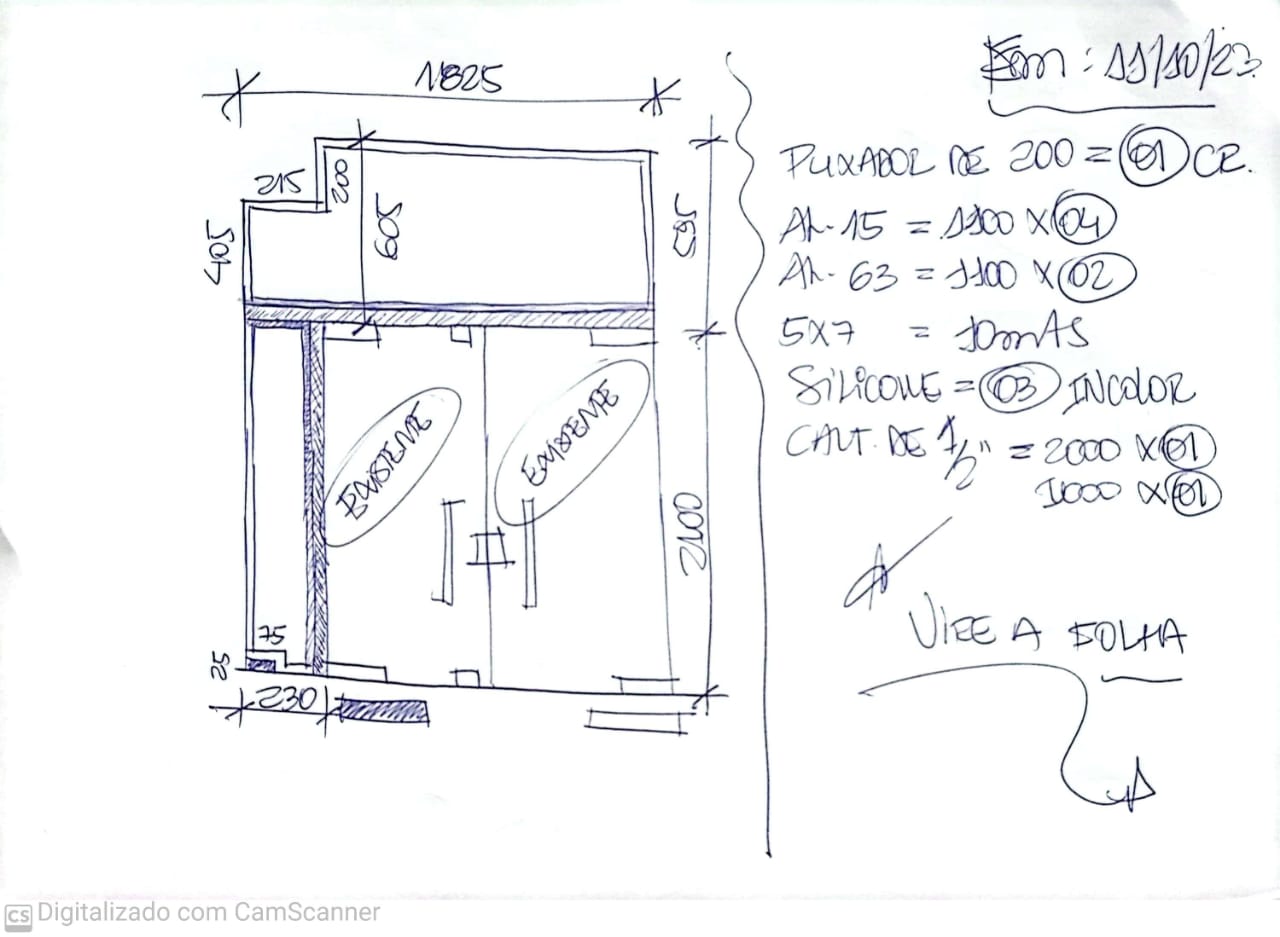 Em: 11/10/23
1825
215
200
605
405
595
EXISTENTE
EXISTENTE
2100
75
25
230
PUXADOR DE 200 = 01 CR.
AL-15 = 1100 X 04
AL-63 = 1100 X 02
5X7 = 10mAS
SILICONE = 03 INCOLOR
CANT. DE 1/2" = 2000 X 01
1000 X 01
VIRE A FOLHA
CS Digitalizado com CamScanner